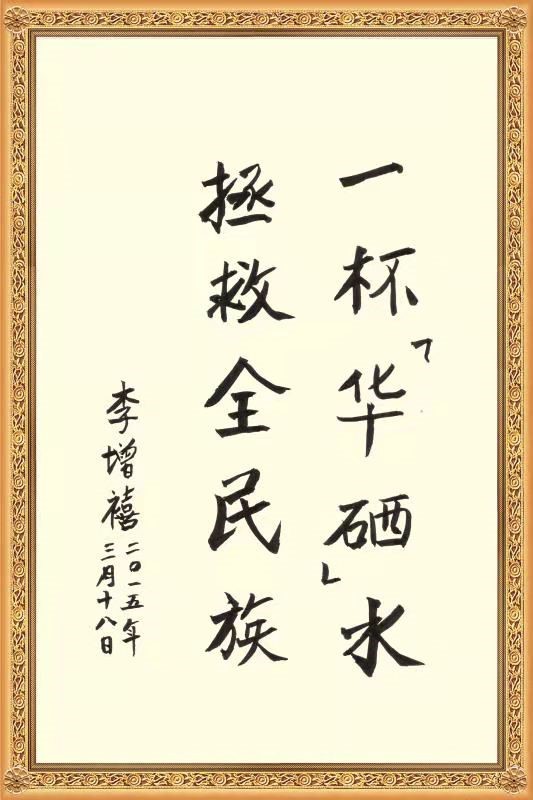 一杯「华硒」水
拯救全民族
李增禧
二〇一五年
三月十八日